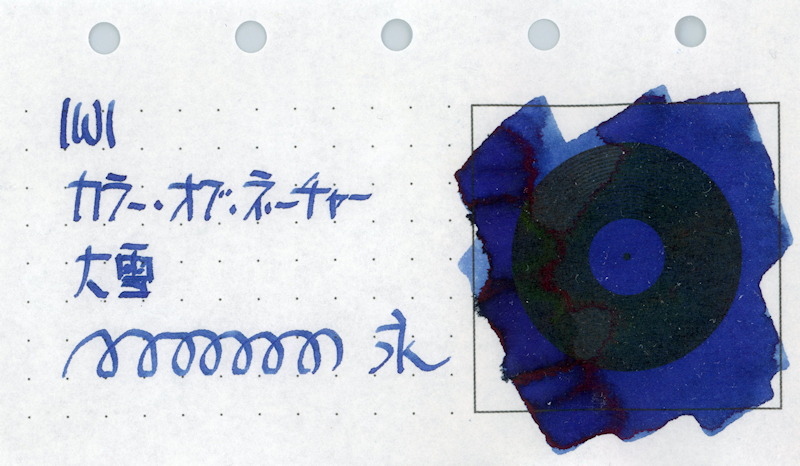 IWI
カラー・オブ・ネーチャー
大雪
永